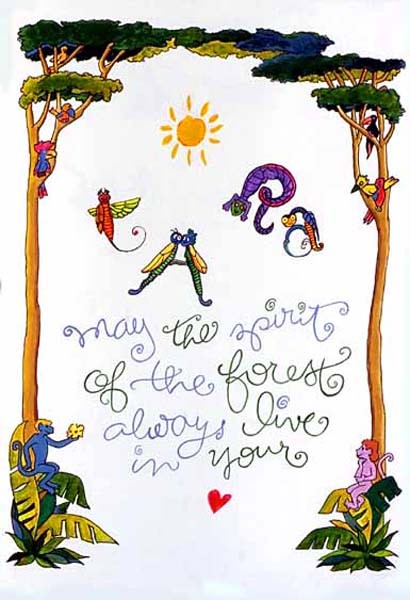 tARa
may the spirit
of the forest
always live
in your